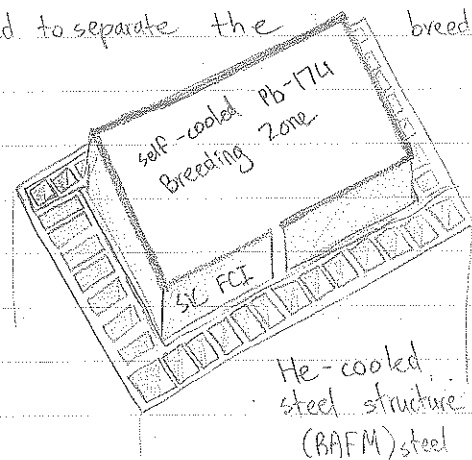 d to separate the breed
self-cooled Pb-17Li
Breeding Zone
SiC FCI
He-cooled
steel structure
(RAFM) steel